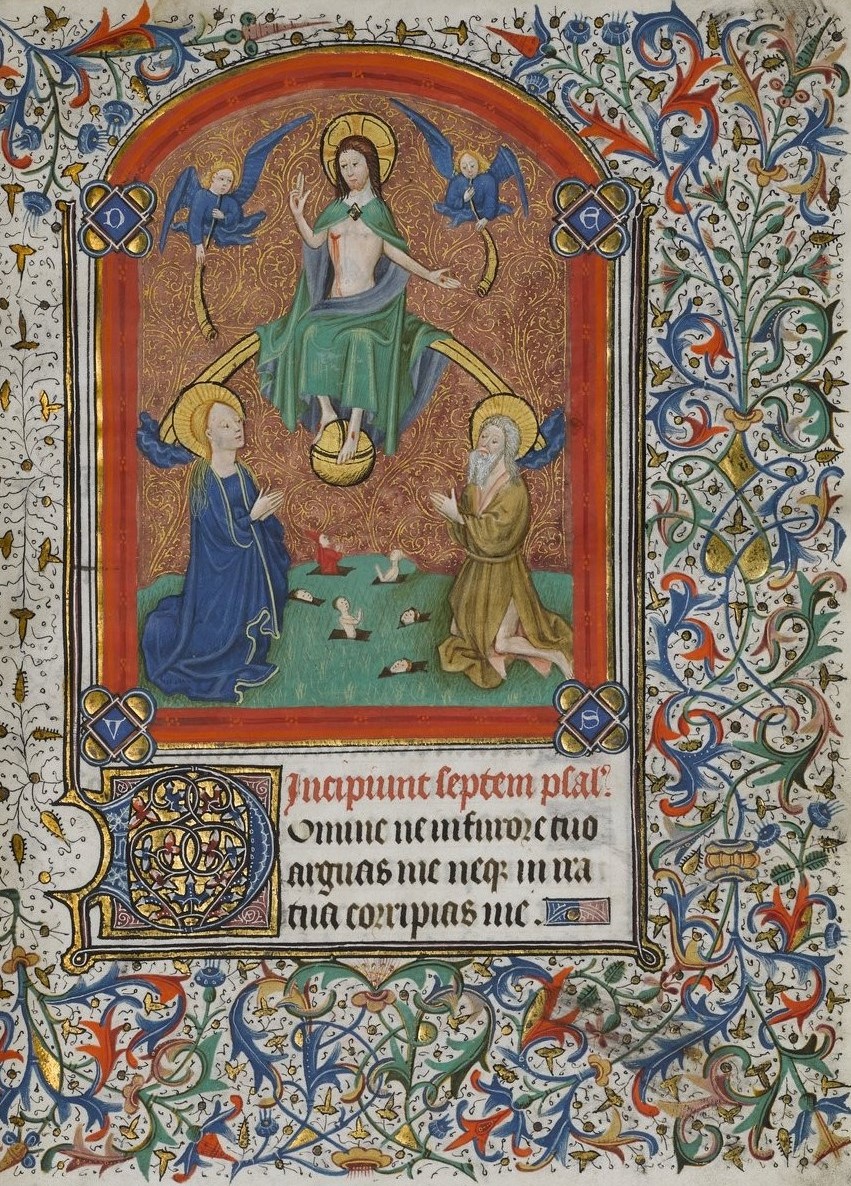 D E
V S
Incipiunt septem psalꝰ.
Domine ne in furore tuo
arguas me neqꝫ in ira
tua corripias me .